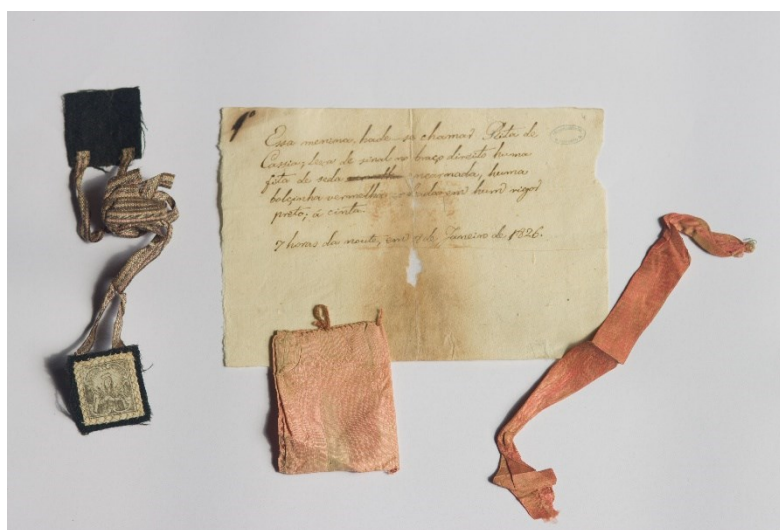 Essa menina, hade-se chamar Rita de
Cassia; leva de sinal no braço direito huma
fita de seda encarnada, huma
bolcinha vermelha em hum
preto; á cinta.
7 horas da noute, em 9 de Janeiro de 1826.